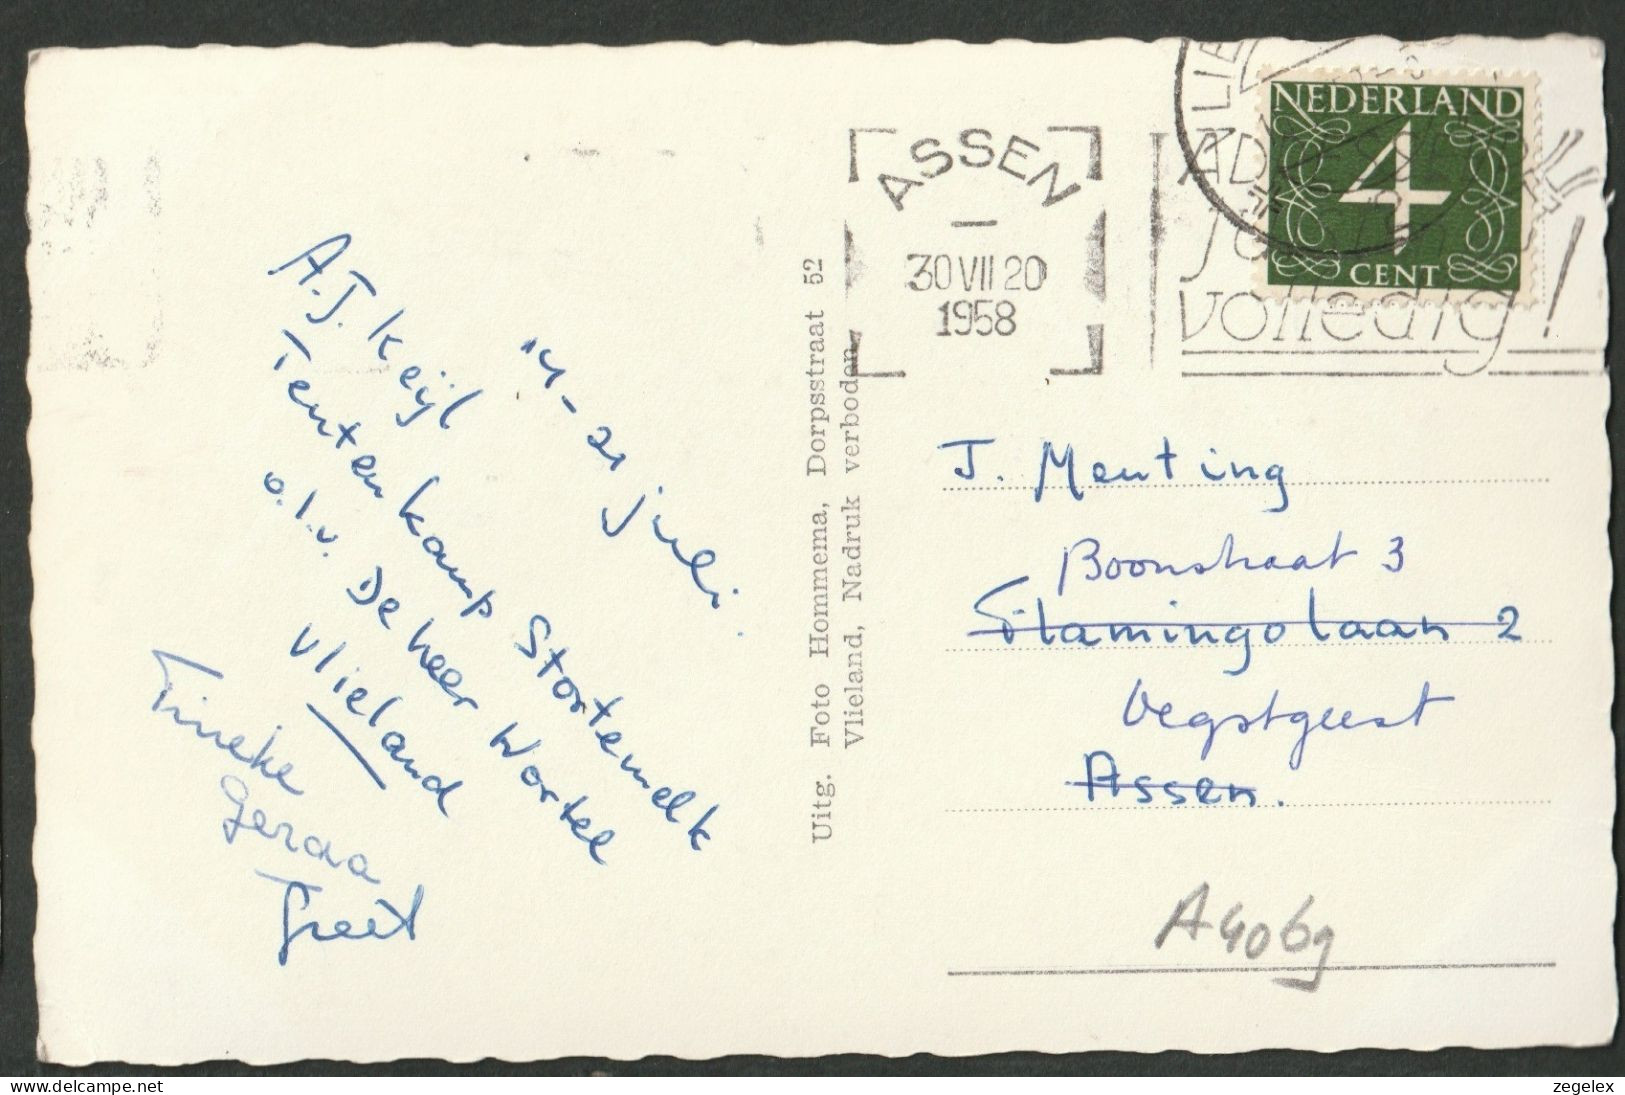 A.J. Keijl
Tentenkamp Stortemelk
o.l.v. De heer Wortel
Vlieland
14-21 juli
Tineke
Geraa
Greet
Uitg. Foto Hommema, Dorpsstraat 52
Vlieland, Nadruk verboden
ASSEN
30 VII 20
1958
volledig!
NEDERLAND
4
CENT
J. Menting
Boonstraat 3
Flamingolaan 2
Oegstgeest
Assen.
A4069
check-out delcampe.net
zegelex